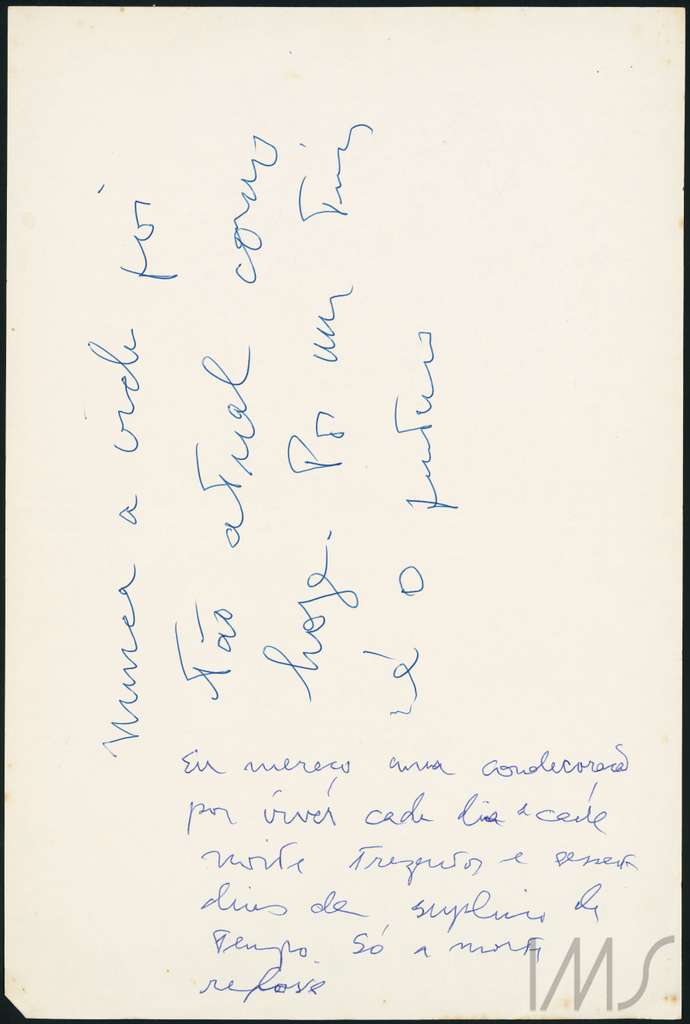 Nunca a vida foi
tão atual como
hoje. Por um triz
é o futuro
Eu mereço uma condecoração
por viver cada dia e cada
noite trezentos e sessenta
dias de suplício de
tempo. Só a morte
repousa
IMS